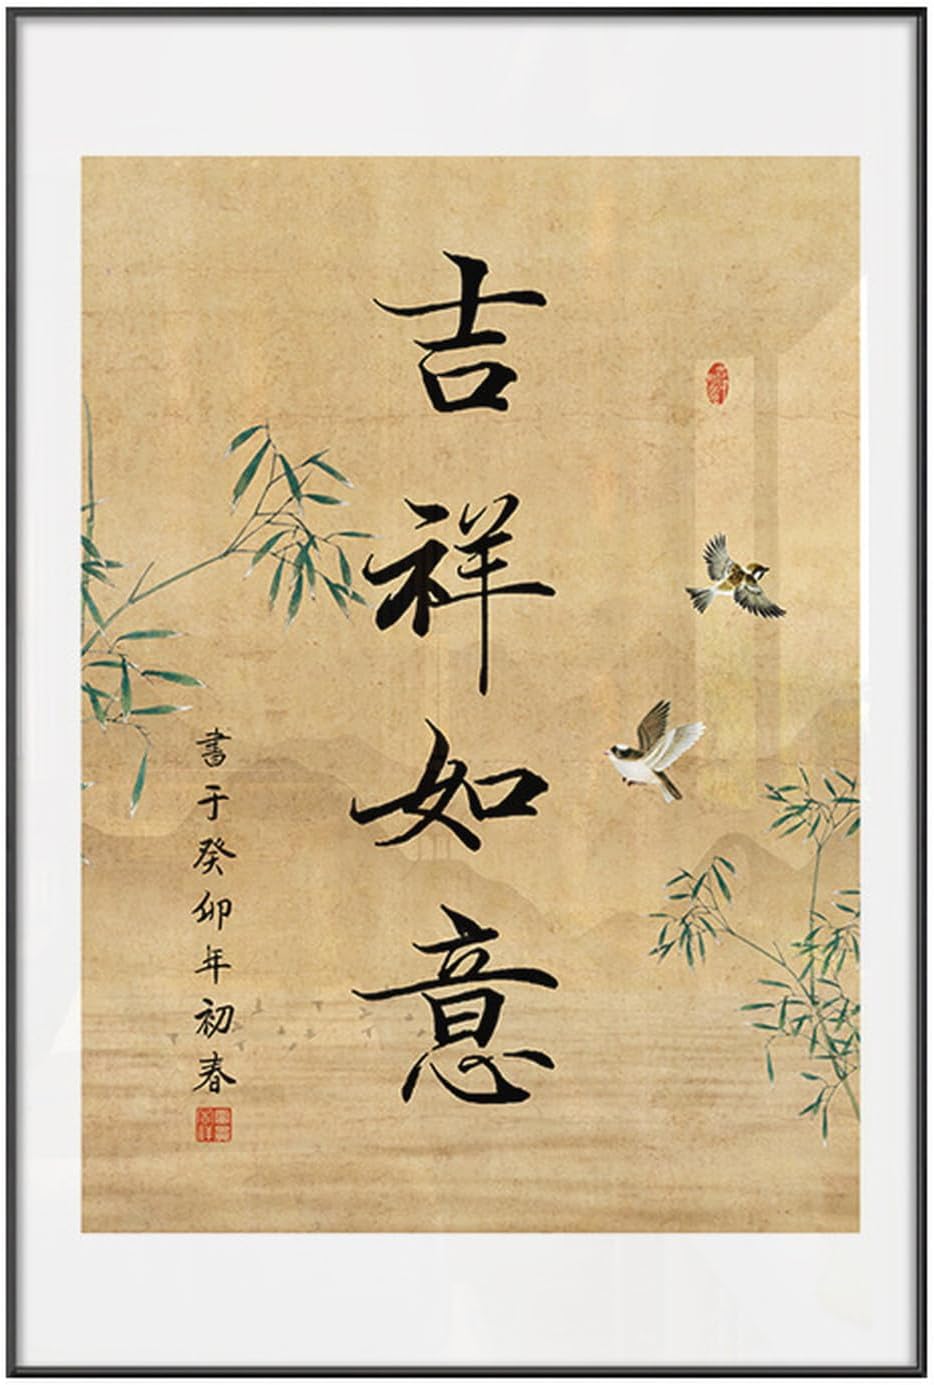 吉祥如意
書于癸卯年初春